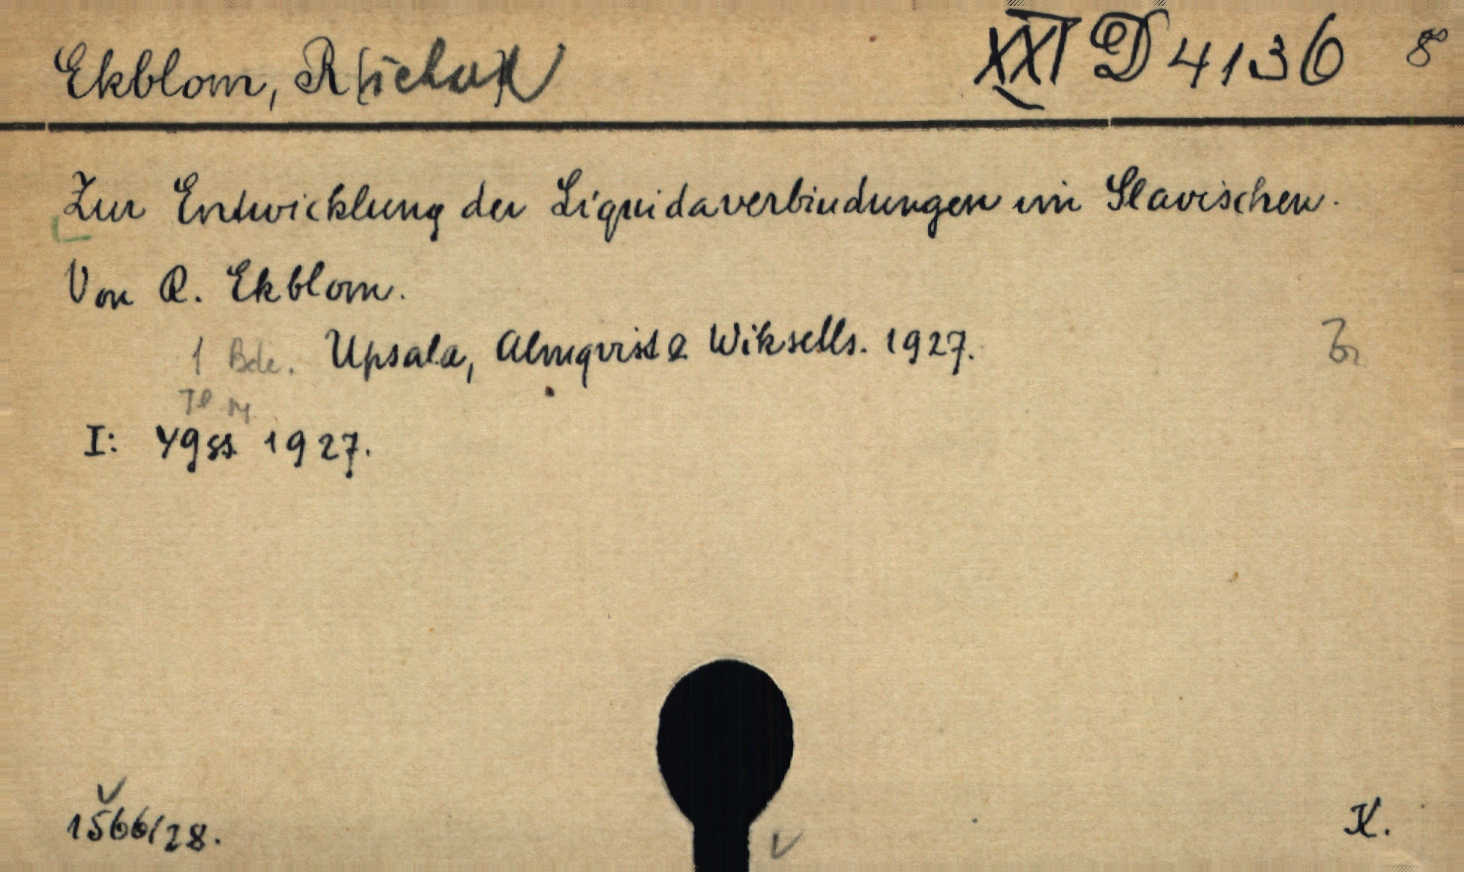 Ekblom, R(ichard) XXI D 4136 8°
Zur Entwicklung der Liquidaverbindungen im Slavischen.
Von R. Ekblom.
1 Bde. Upsala, Almqvist & Wiksells. 1927.
I: 79 SS. 1927.
1566/28. K.